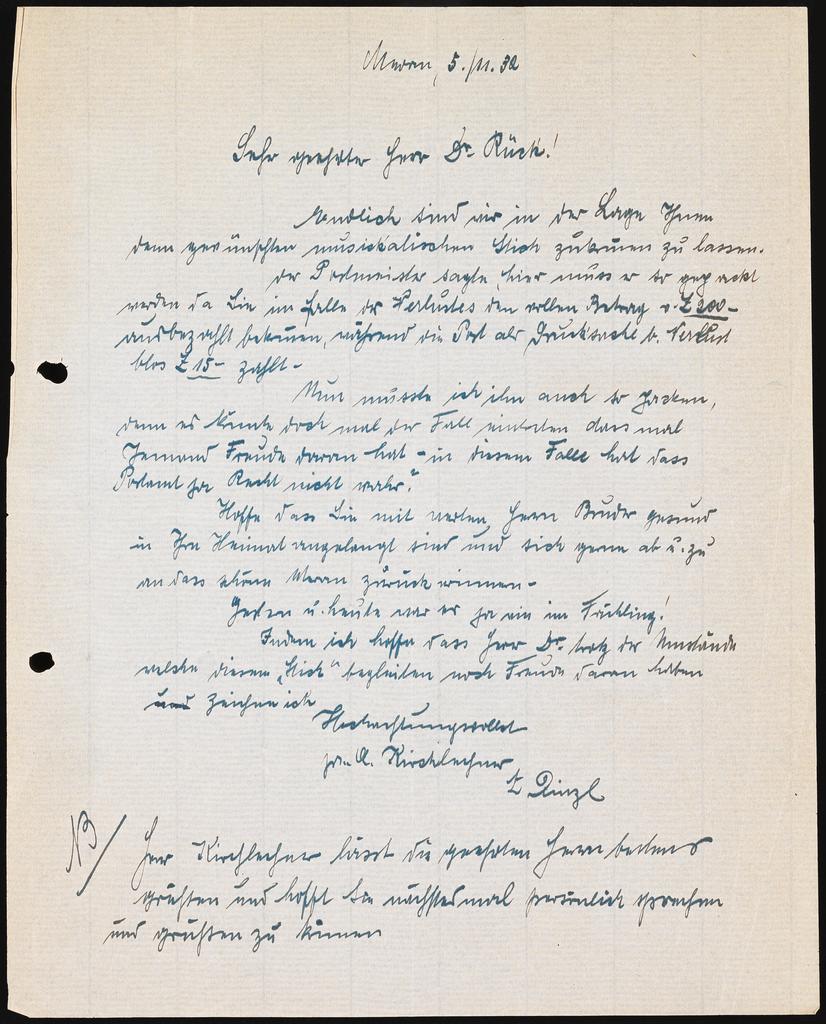 Meran, 5./11. 32
Sehr geehrter Herr Dr. Rück!
Endlich sind wir in der Lage Ihnen
denn gewünschten musikalischen Stich zukommen zu lassen.
Der Postmeister sagte, hier muss er so gepackt
werden da Sie im Falle des Verlustes den vollen Betrag v. £ 200-
ausbezahlt bekommen, während die Post als Drucksache b. Verlust
blos £ 15- zahlt -
Nun musste ich ihn auch so packen,
denn es könnte doch mal der Fall eintreten dass mal
Jemand Freude daran hat - in diesem Falle hat dass
Postamt ja Recht nicht wahr?
Hoffe dass Sie mit werten Herrn Bruder gesund
in Ihre Heimat angelangt sind und sich gerne ab u. zu
an dass schöne Meran zurück erinnern -
Gestern u. heute war es ja wie im Frühling!
Indem ich hoffe dass Herr Dr. trotz der Umstände
welche diesem "Stich" begleiten noch Freude daran haben
und zeichne ich
Hochachtungsvollst
A. Kirchlechner
Dinzl
NB/ Herr Kirchlechner lässt die geehrten Herrn bestens
grüssen und hofft Sie nächstesmal persönlich sprechen
und grüssen zu können